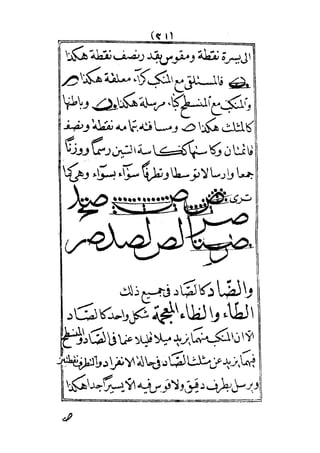 (٢١)
الى يسرة نقطة ومقوس بقدر نصف نقطة هكذا
فالمستلقى مع المنكب كرأء معلقة هكذا
والمنكب مع المنسطح كباء مرسلة هكذا وباطنها
كالمثلث هكذا ومسافته بتمامه نقطة ونصف
وكاسة السين رسماً ووزناً
جمعا وارسالا توسطا وتطرفاً سواء بسواء وهى كما
ترى
والضاد كالصاد فى جميع ذلك
الطاء والظاء المعجمة شكل واحد كالصاد
الا ان المنكب منهما يزيد ميلا قليلا عما فى الصاد والمنسطح
فيهما يزيد عن مثلث الصاد فى حالة الانفراد والتطرف نقطتين
ويرسل بطرف دقيق ولا قوس فيه الا يسيرا جدا هكذا